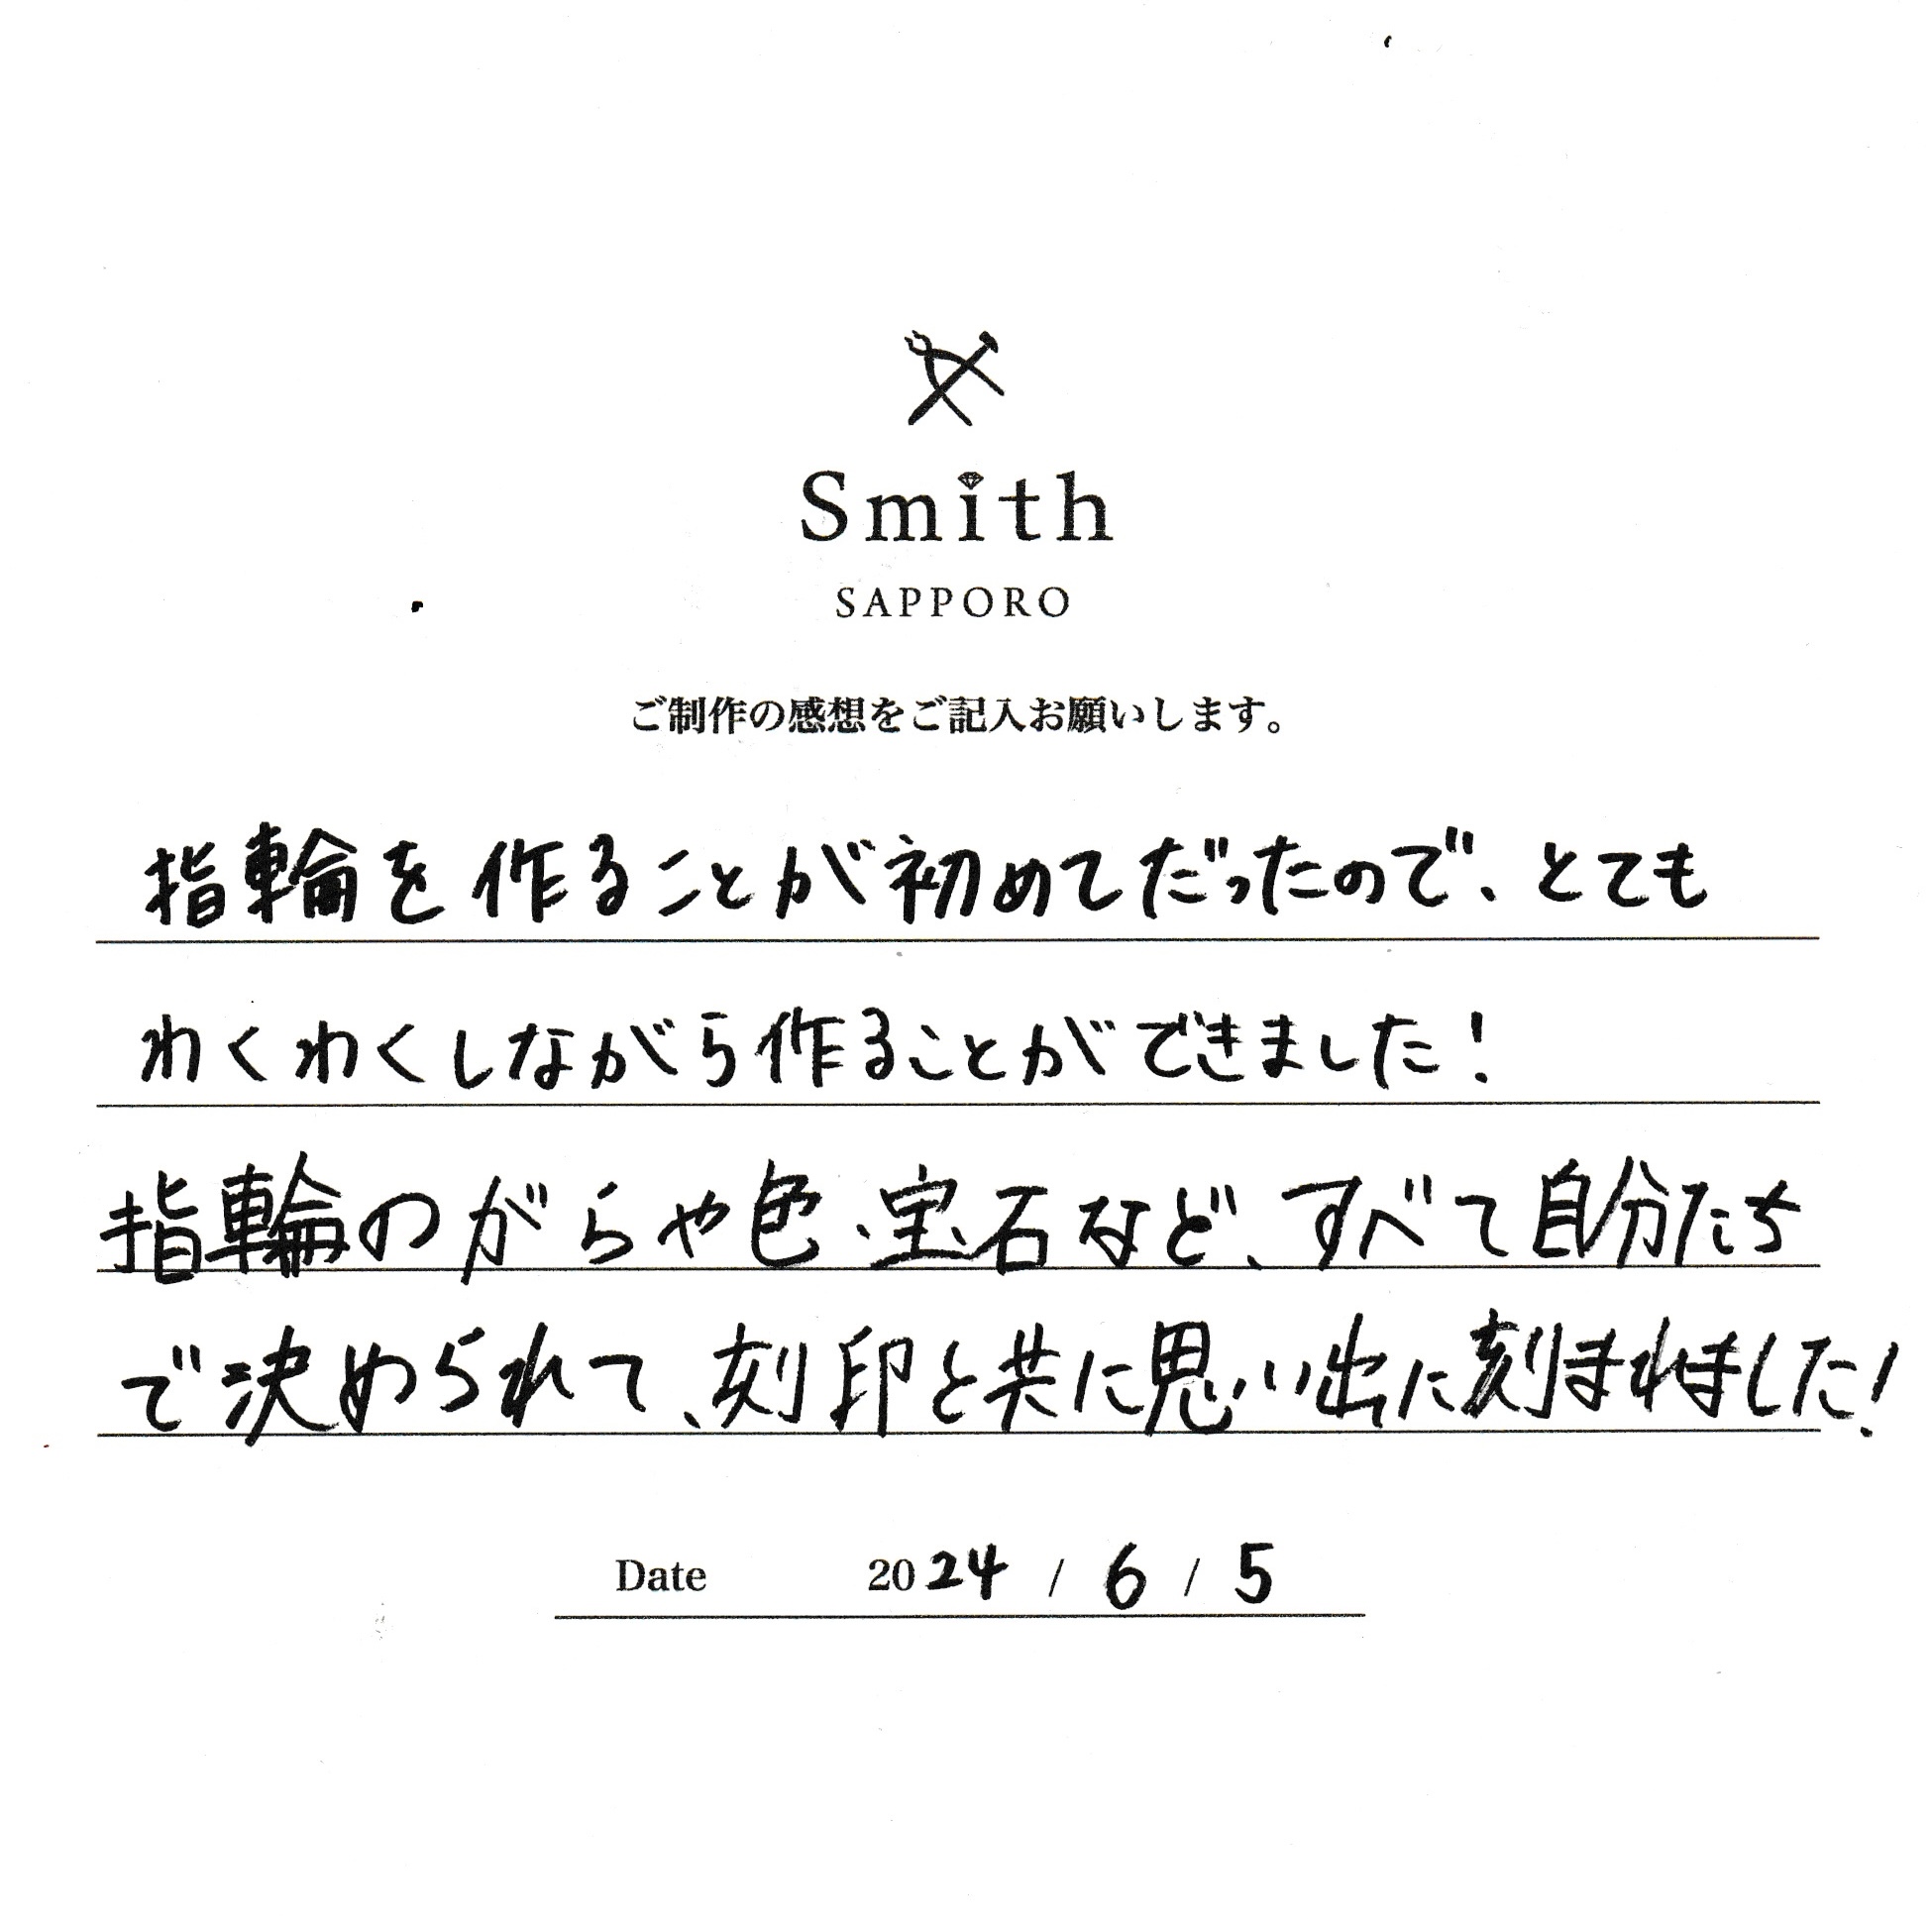 Smith
SAPPORO
ご制作の感想をご記入お願いします。
指輪を作ることが初めてだったので、とても
わくわくしながら作ることができました!
指輪のがらや色、宝石など、すべて自分たち
で決められて、刻印と共に思い出に刻まれました!
Date 2024 / 6 / 5